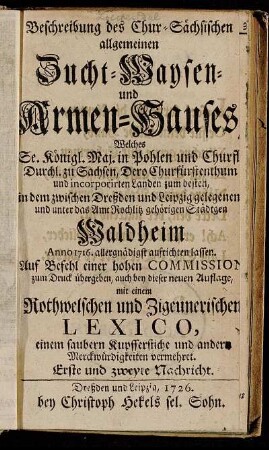 Beschreibung des Chur-Sächsischen
allgemeinen
Zucht-Waysen-
und
Armen-Hauses
Welches
Se. Königl. Maj. in Pohlen und Churfl
Durchl. zu Sachsen, Dero Churfürstenthum
und incorporirten Landen zum besten,
in dem zwischen Dreßden und Leipzig gelegenen
und unter das Amt Rochlitz gehörigen Städtgen
Waldheim
Anno 1716. allergnädigst aufrichten lassen.
Auf Befehl einer hohen COMMISSION
zum Druck übergeben, auch bey dieser neuen Auflage,
mit einem
Rothwelschen und Zigeunerischen
LEXICO,
einem saubern Kupfferstiche und andern
Merckwürdigkeiten vermehret.
Erste und zweyte Nachricht.
Dreßden und Leipzig, 1726.
bey Christoph Hekels sel. Sohn.